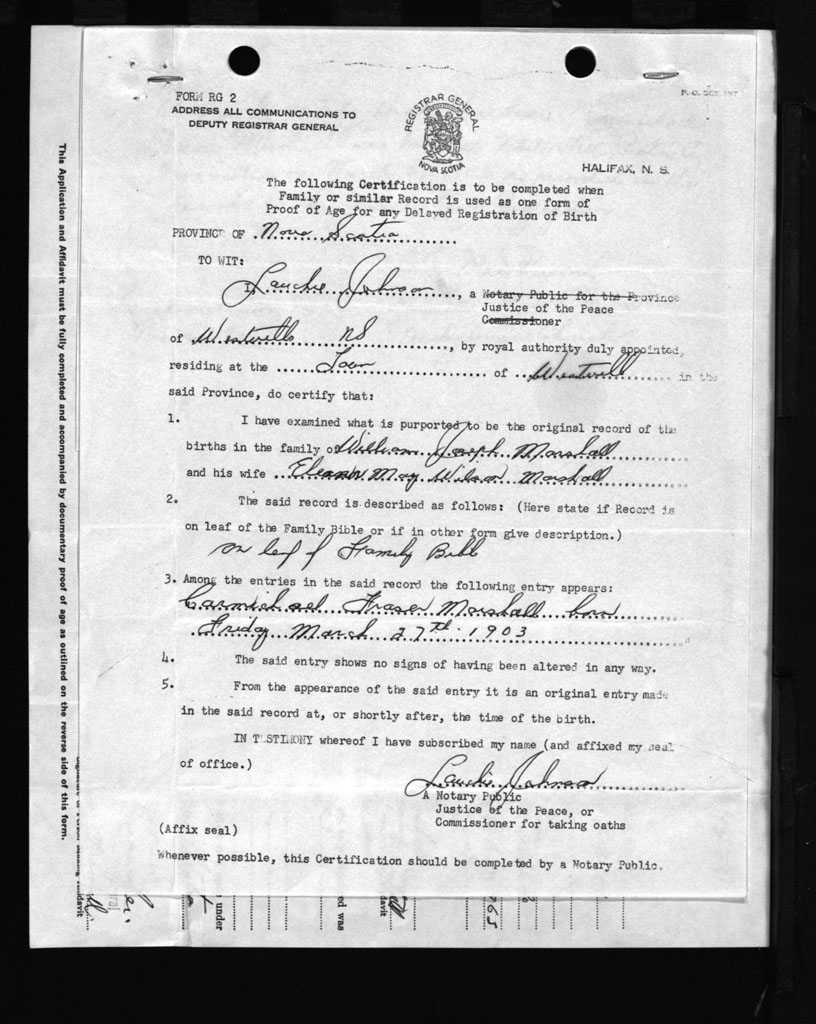 FORM RG 2
ADDRESS ALL COMMUNICATIONS TO
DEPUTY REGISTRAR GENERAL
REGISTRAR GENERAL
NOVA SCOTIA
P. O. BOX
HALIFAX, N. S.
The following Certification is to be completed when
Family or similar Record is used as one form of
Proof of Age for any Delayed Registration of Birth
PROVINCE OF Nova Scotia
TO WIT:
I, Lauchie Johnson, a Notary Public for the Province
Justice of the Peace
Commissioner
of Westville NS, by royal authority duly appointed,
residing at the Town of Westville in the
said Province, do certify that:
1. I have examined what is purported to be the original record of the
births in the family of William Joseph Marshall
and his wife Eleanor May Wilson Marshall
2. The said record is described as follows: (Here state if Record is
on leaf of the Family Bible or if in other form give description.)
on leaf of Family Bible
3. Among the entries in the said record the following entry appears:
Carmichael Fraser Marshall born
Friday March 27th 1903
4. The said entry shows no signs of having been altered in any way.
5. From the appearance of the said entry it is an original entry made
in the said record at, or shortly after, the time of the birth.
IN TESTIMONY whereof I have subscribed my name (and affixed my seal
of office.)
Lauchie Johnson
A Notary Public
Justice of the Peace, or
Commissioner for taking oaths
(Affix seal)
Whenever possible, this Certification should be completed by a Notary Public.
This Application and Affidavit must be fully completed and accompanied by documentary proof of age as outlined on the reverse side of this form.
under
ed was